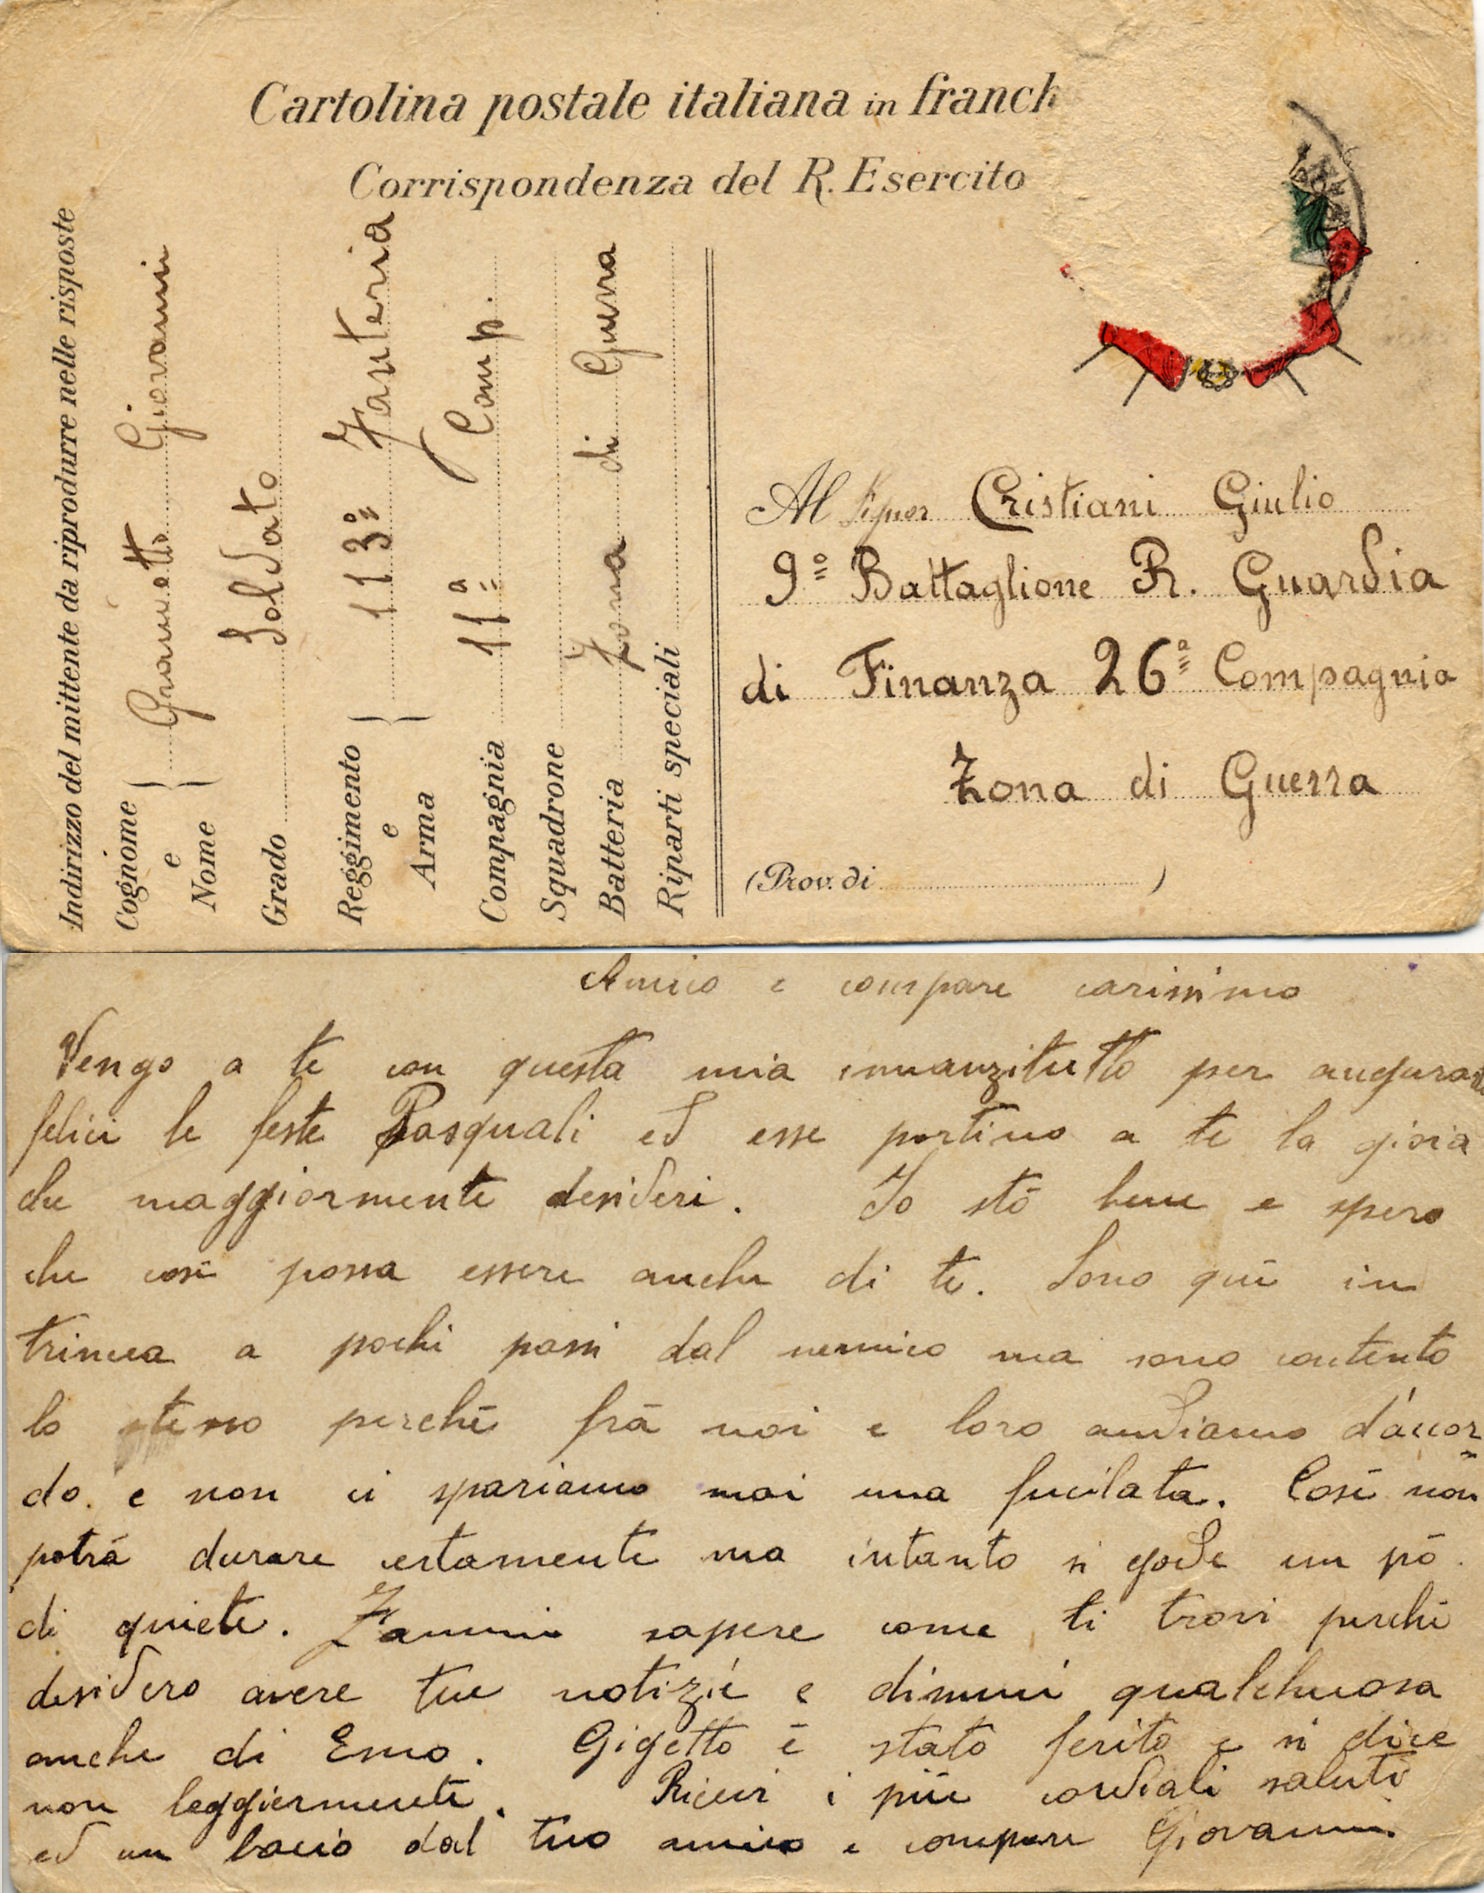 Cartolina postale italiana in franch
Corrispondenza del R. Esercito
Indirizzo del mittente da riprodurre nelle risposte
Cognome e Nome Giovanni
Grado Soldato
Reggimento e Arma 113º Fanteria
Compagnia 11ª Comp.
Squadrone
Batteria Zona di Guerra
Riparti speciali
Al Signor Cristiani Giulio
9º Battaglione R. Guardia
di Finanza 26ª Compagnia
Zona di Guerra
(Prov. di )
Amico e compare carissimo
Vengo a te con questa mia innanzitutto per augurarti
felici le feste Pasquali ed esse portino a te la gioia
che maggiormente desideri. Io stò bene e spero
che così possa essere anche di te. Sono quì in
trincea a pochi passi dal nemico ma sono contento
lo stesso perchè frà noi e loro andiamo d'accor
do. e non ci spariamo mai una fucilata. Così non
potrà durare certamente ma intanto si gode un pò
di quiete. Fammi sapere come ti trovi perchè
desidero avere tue notizie e dimmi qualchecosa
anche di Emo. Gigetto è stato ferito e si dice
non leggiermente. Ricevi i più cordiali saluti
ed un bacio dal tuo amico e compare Giovanni